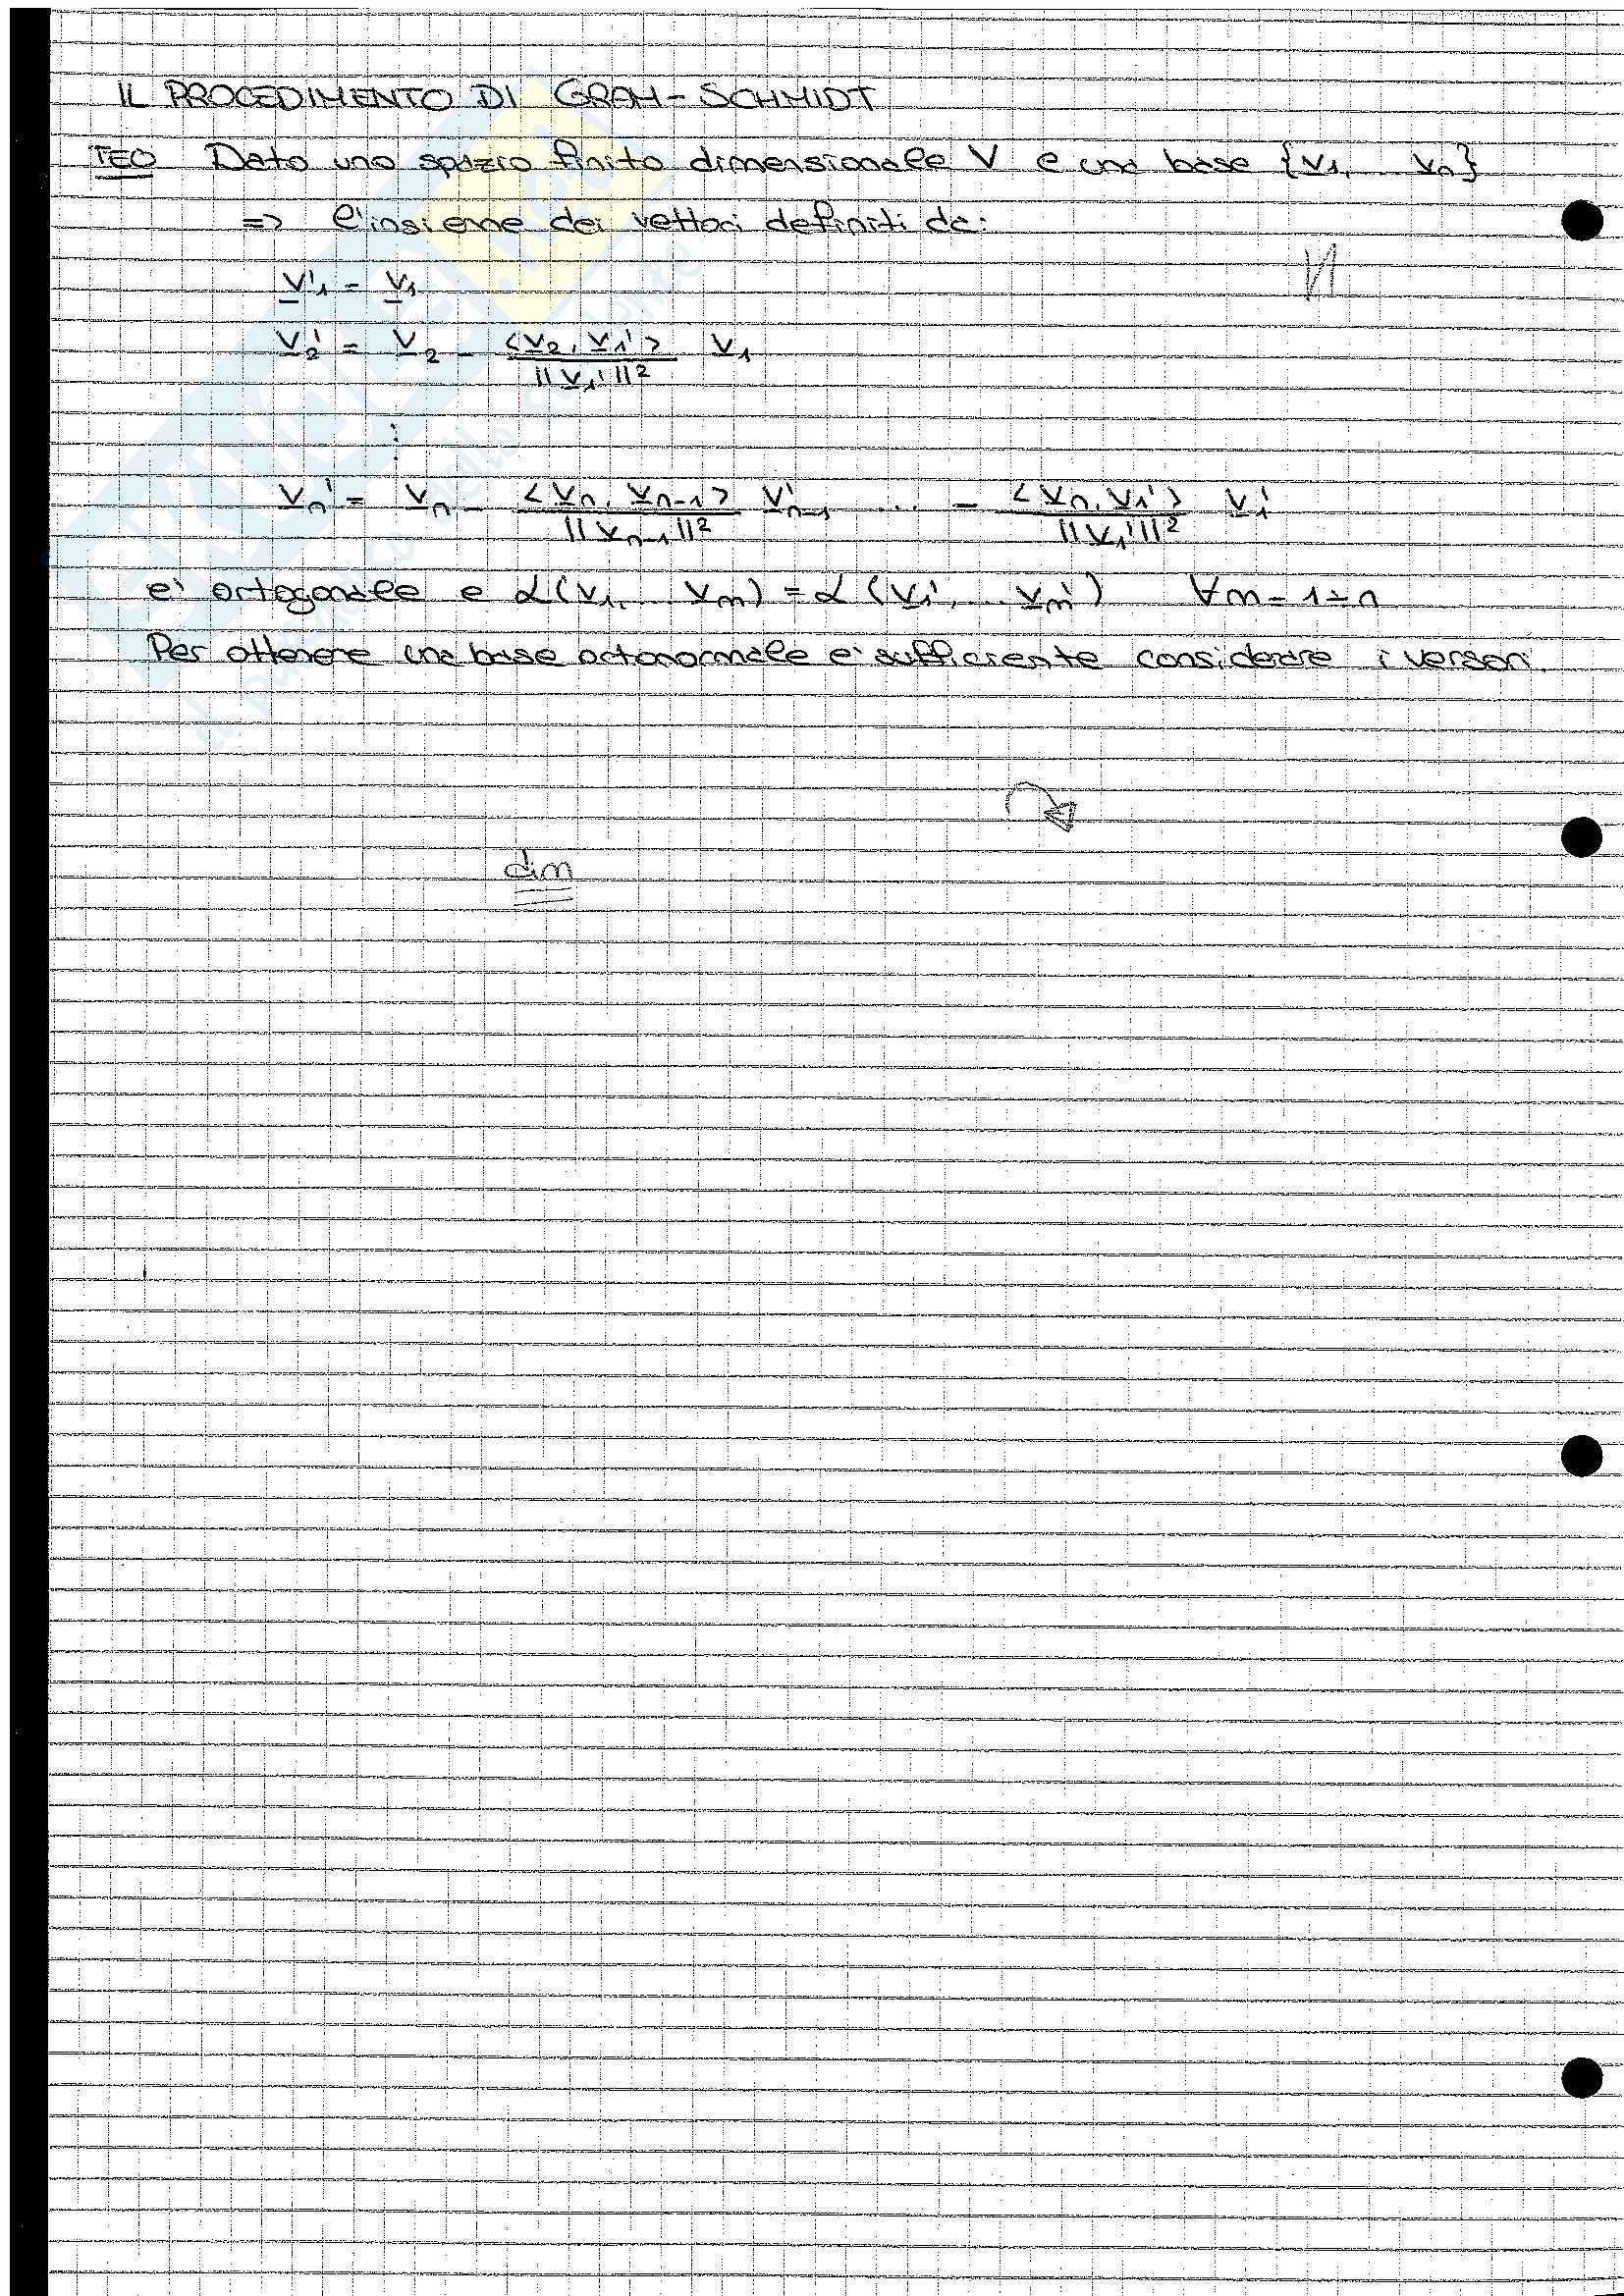 IL PROCEDIMENTO DI GRAM-SCHMIDT
TEO Dato uno spazio finito dimensionale V e una base {v1, ... vn}
=> l'insieme dei vettori definiti da:
v'1 = v1
v2' = v2 - <v2, v1'> / ||v1'||² v1
⋮
vn' = vn - <vn, vn-1> / ||vn-1||² v'n-1 ... - <vn, v1'> / ||v1'||² v1'
e' ortogonale e L(v1, ... vm) = L(v1', ... vm') ∀m = 1÷n
Per ottenere una base ortonormale e' sufficiente considerare i versori.
dim